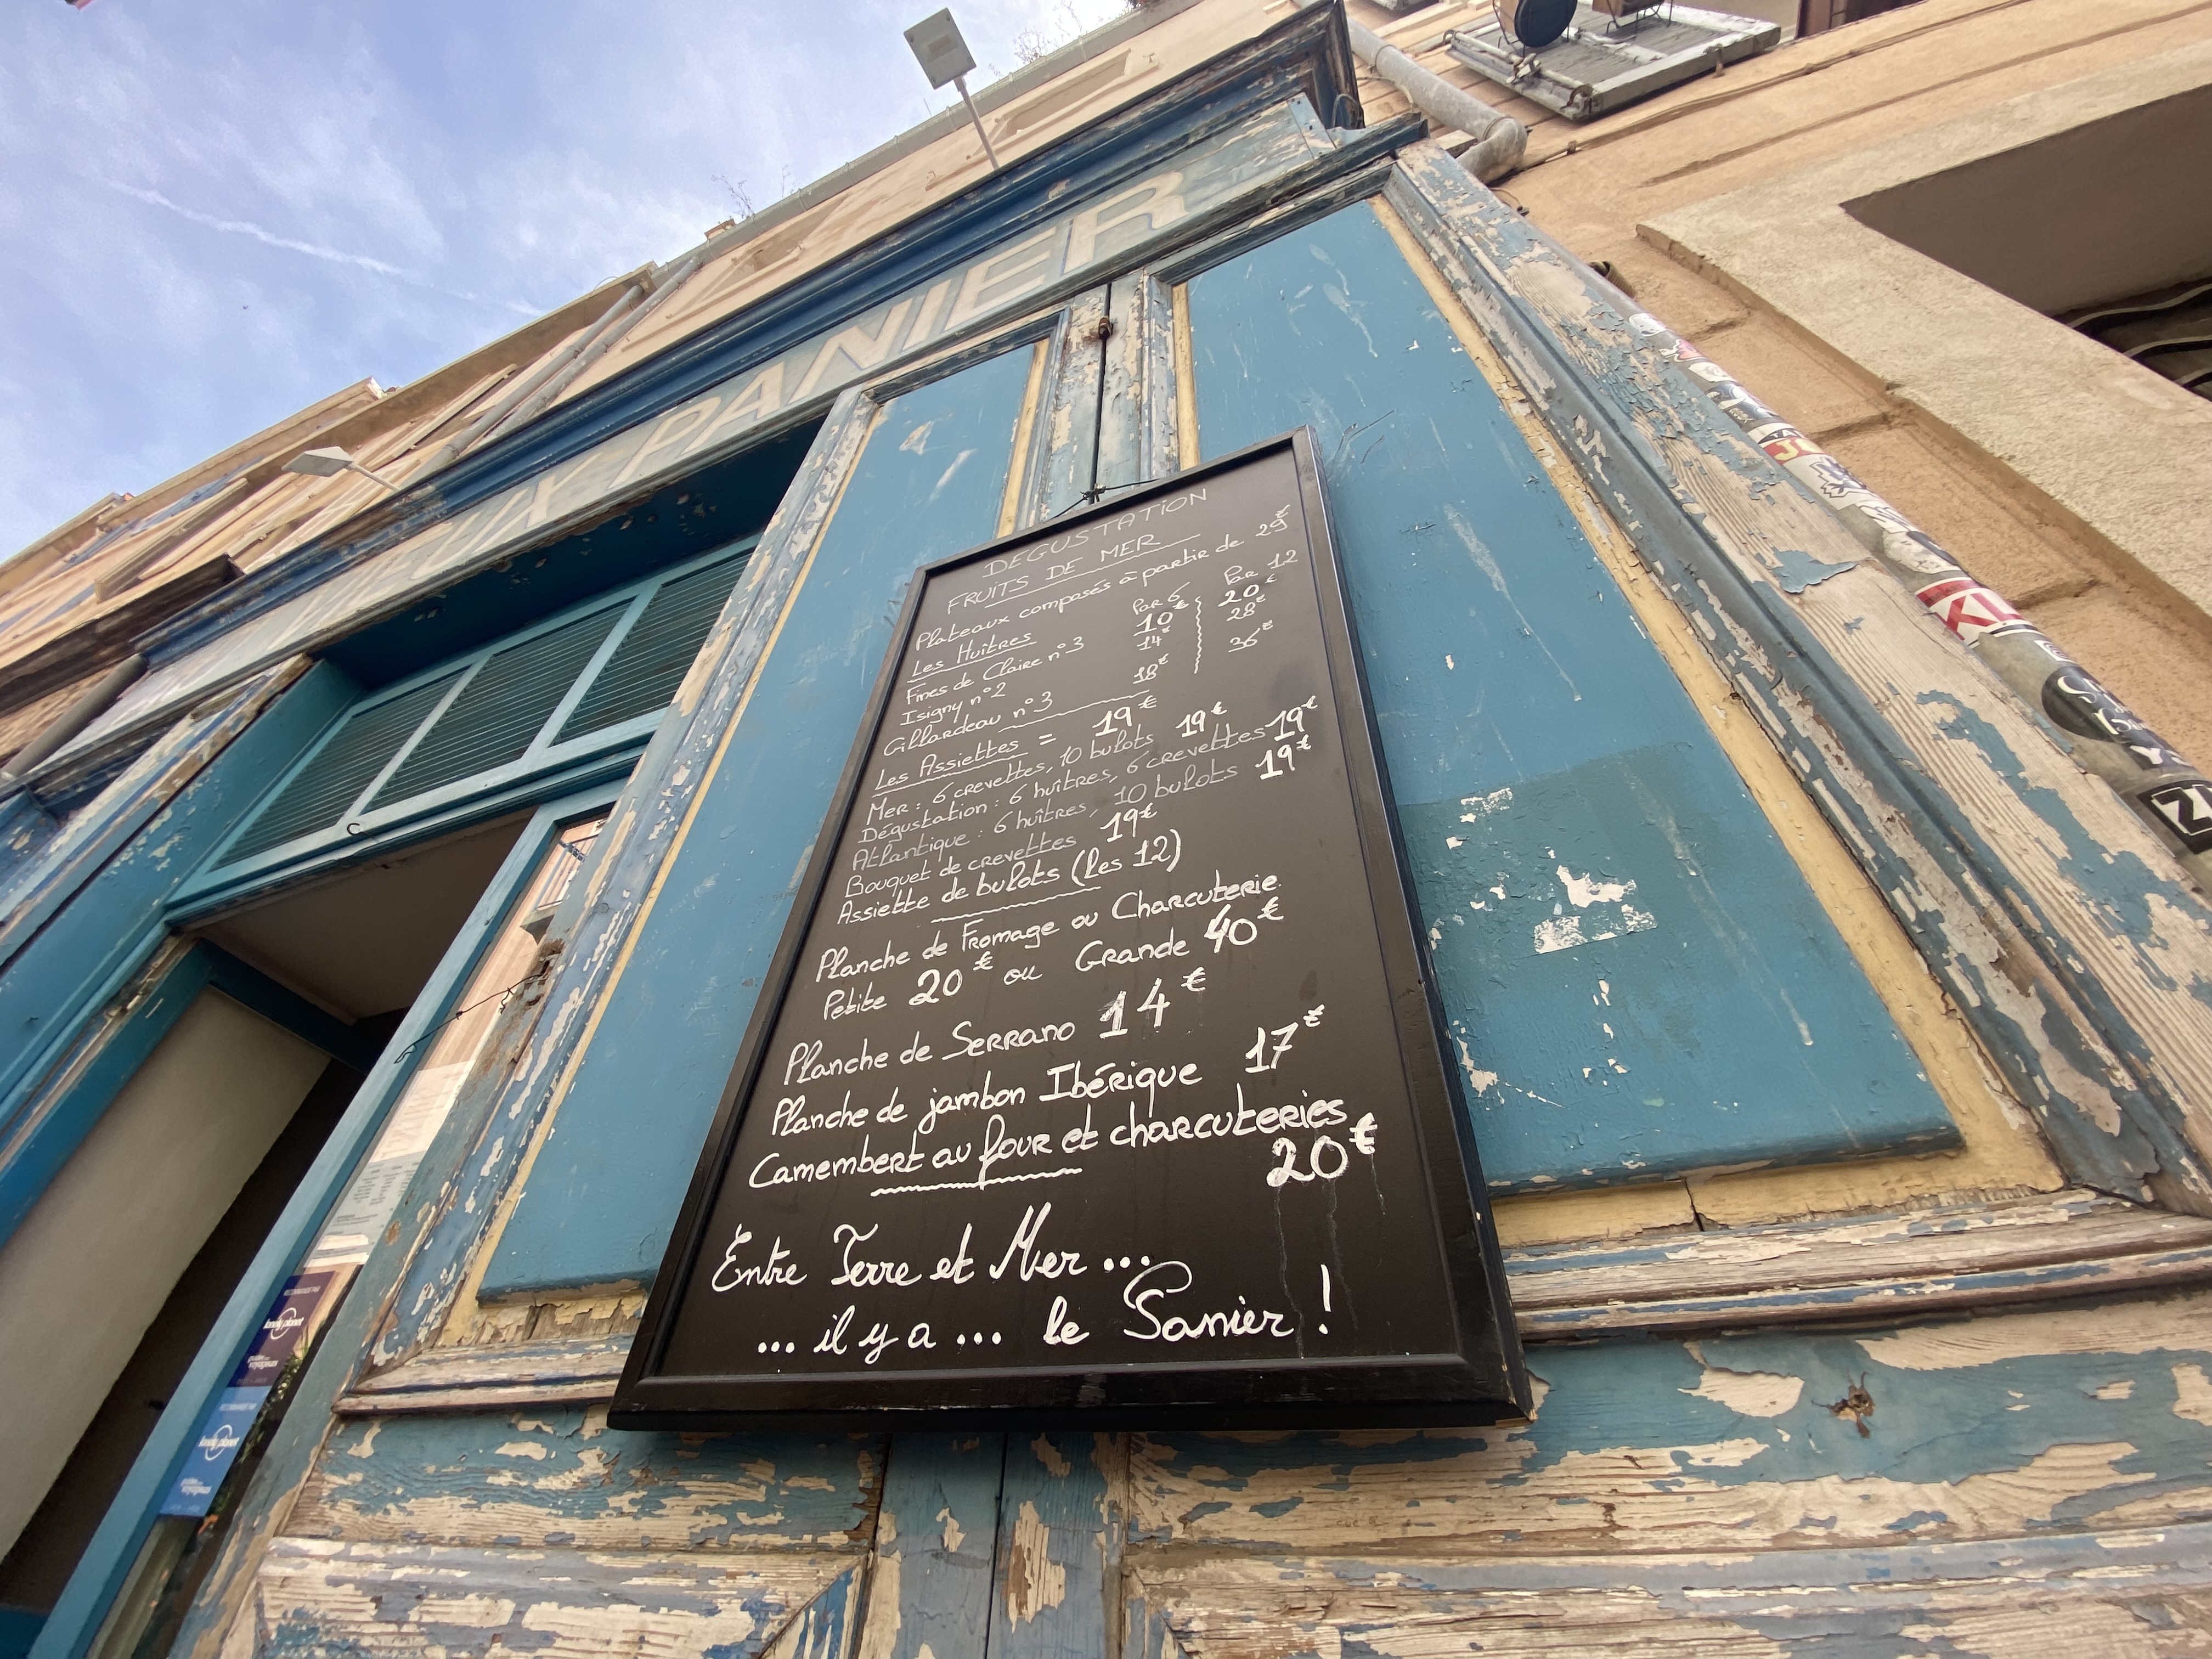 PANIER
DÉGUSTATION
FRUITS DE MER
Plateaux composés à partir de 29€
Les Huîtres Par 6 Par 12
Fines de Claire n°3 10€ 20€
Isigny n°2 14€ 28€
Gillardeau n°3 18€ 36€
Les Assiettes = 19€
Mer: 6 crevettes, 10 bulots 19€
Dégustation: 6 huîtres, 6 crevettes 19€
Atlantique: 6 huîtres, 10 bulots 19€
Bouquet de crevettes 19€
Assiette de bulots (les 12)
Planche de Fromage ou Charcuterie
Petite 20€ ou Grande 40€
Planche de Serrano 14€
Planche de jambon Ibérique 17€
Camembert au four et charcuteries
20€
Entre Terre et Mer...
... il y a ... le Panier !
lonely planet
lonely planet